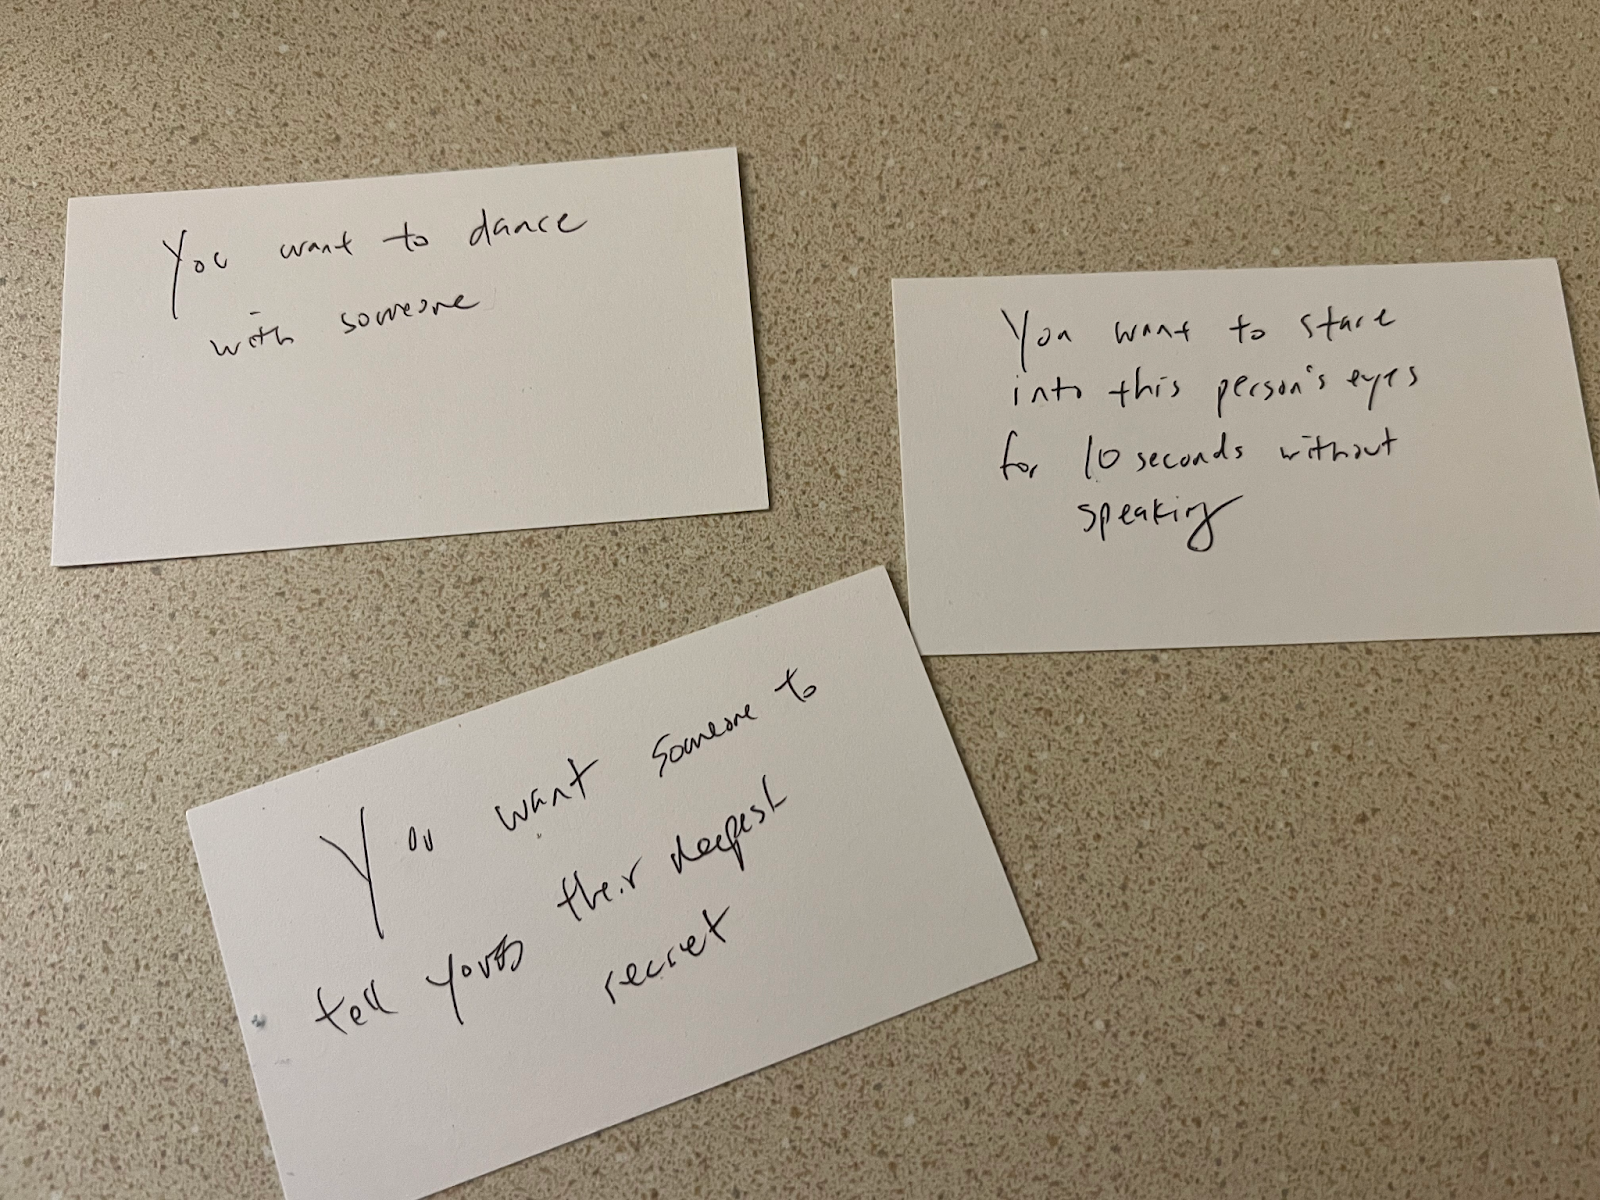 You want to dance
with someone
You want to stare
into this person's eyes
for 10 seconds without
speaking
You want someone to
tell you their deepest
secret